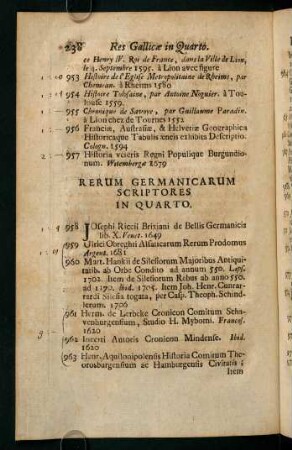 238 Res Gallicæ in Quarto.
ce Henry IV. Roy de France, dans la Ville de Lion,
le 4. Septembre 1595. à Lion avec figure
953 Histoire de l'Eglise Metropolitaine de Rheims, par
Chesneau. à Rheims 1580
954 Histoire Tolosaine, par Antoine Noguier. à Tou-
louse 1559.
955 Chronique de Savoye, par Guillaume Paradin.
à Lion chez de Tournes 1552
956 Franciæ, Austrasiæ, & Helvetiæ Geographica
Historicaque Tabulis æneis exhibita Descriptio.
Cologn. 1594
957 Historia veteris Regni Populique Burgundio-
num. Witemberga 1679
RERUM GERMANICARUM
SCRIPTORES
IN QUARTO.
958 JOsephi Riccii Brixiani de Bellis Germanicis
lib. X. Venet. 1649
959 Ulrici Obreghti Alsaticarum Rerum Prodomus
Argent. 1681
960 Mart. Hankii de Silesiorum Majoribus Antiqui-
tatib. ab Orbe Condito ad annum 550. Lips.
1702. Item de Silesiorum Rebus ab anno 550.
ad 1170. ibid. 1705. Item Joh. Henr. Cunra-
rardi Silesia togata, per Casp. Theoph. Schind-
leranum. 1706
961 Herm. de Lerbeke Cronicon Comitum Schu-
venburgensium, Studio H. Mybomi. Francof.
1620
962 Incerti Autoris Cronicon Mindense. Ibid.
1620
963 Henr. Aquilonipolensis Historia Comitum The-
orosbargensium ac Hamburgensis Civitatis :
Item